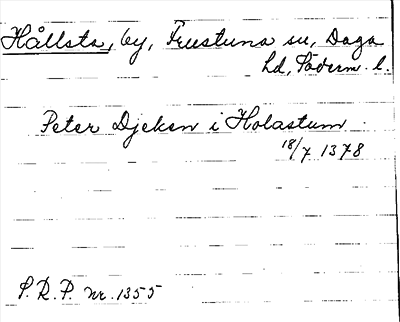 Hållsta, by, Frustuna sn, Daga
hd, Söderm. l.
Peter Djeken i Holastum
18/7 1378
S. R. P. nr. 1355